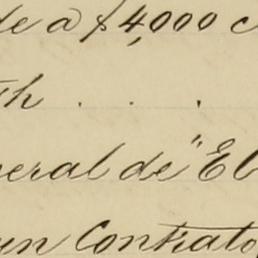 de a $4,000 c
th . . .
eral de "El
un Contrato